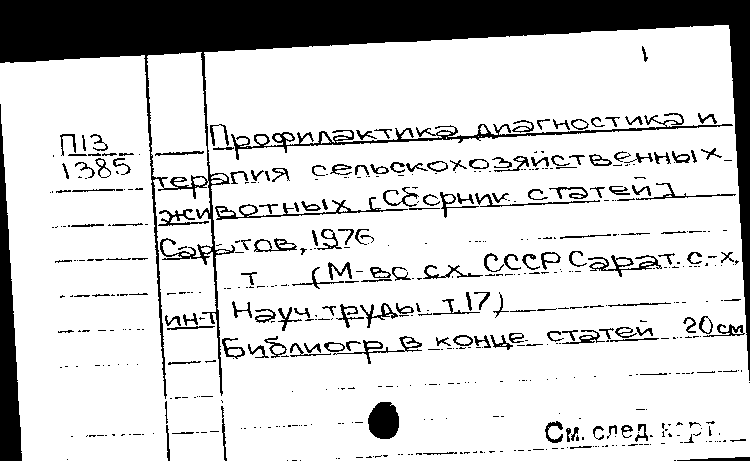 1
П13
1385
Профилактика, диагностика и
терапия сельскохозяйственных
животных [Сборник статей]
Саратов, 1976
т (М-во с.х. СССР Сарат. с.-х.
ин-т Науч. труды т.17)
Библиогр. в конце статей 20см
См. след. карт.